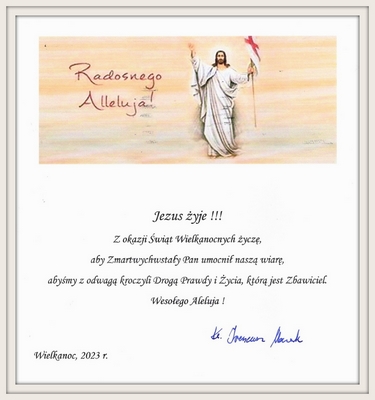 Radosnego
Alleluja!
Jezus żyje !!!
Z okazji Świąt Wielkanocnych życzę,
aby Zmartwychwstały Pan umocnił naszą wiarę,
abyśmy z odwagą kroczyli Drogą Prawdy i Życia, którą jest Zbawiciel.
Wesołego Aleluja !
Ks. Ireneusz
Wielkanoc, 2023 r.